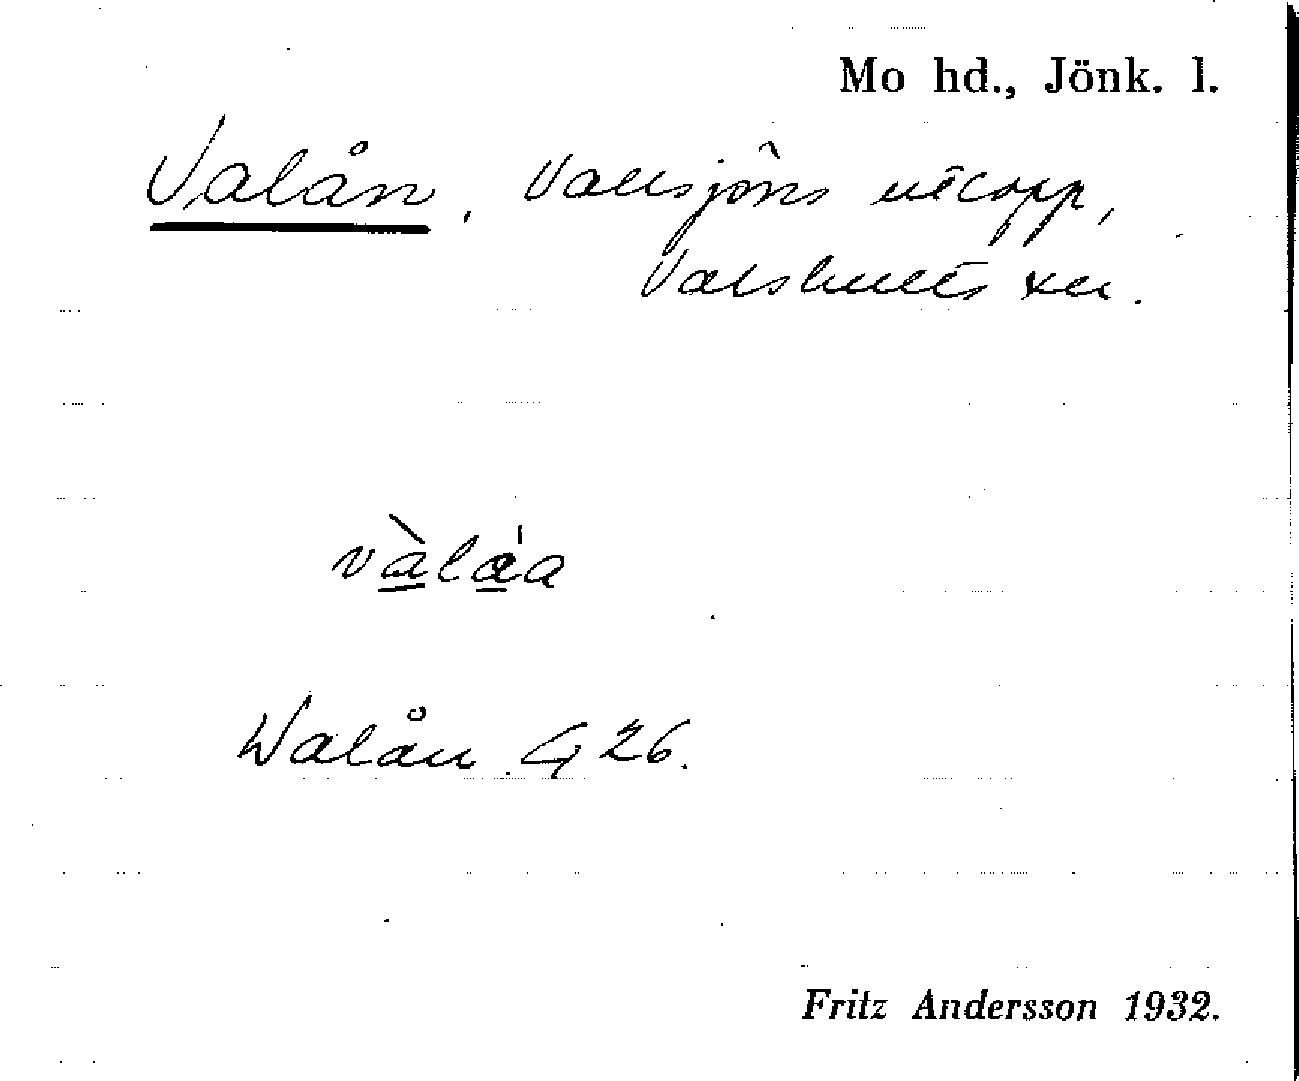 Mo hd., Jönk. l.
Valån, Vallsjöns utlopp,
Valshults kn.
vàláa
Walån G 26.
Fritz Andersson 1932.